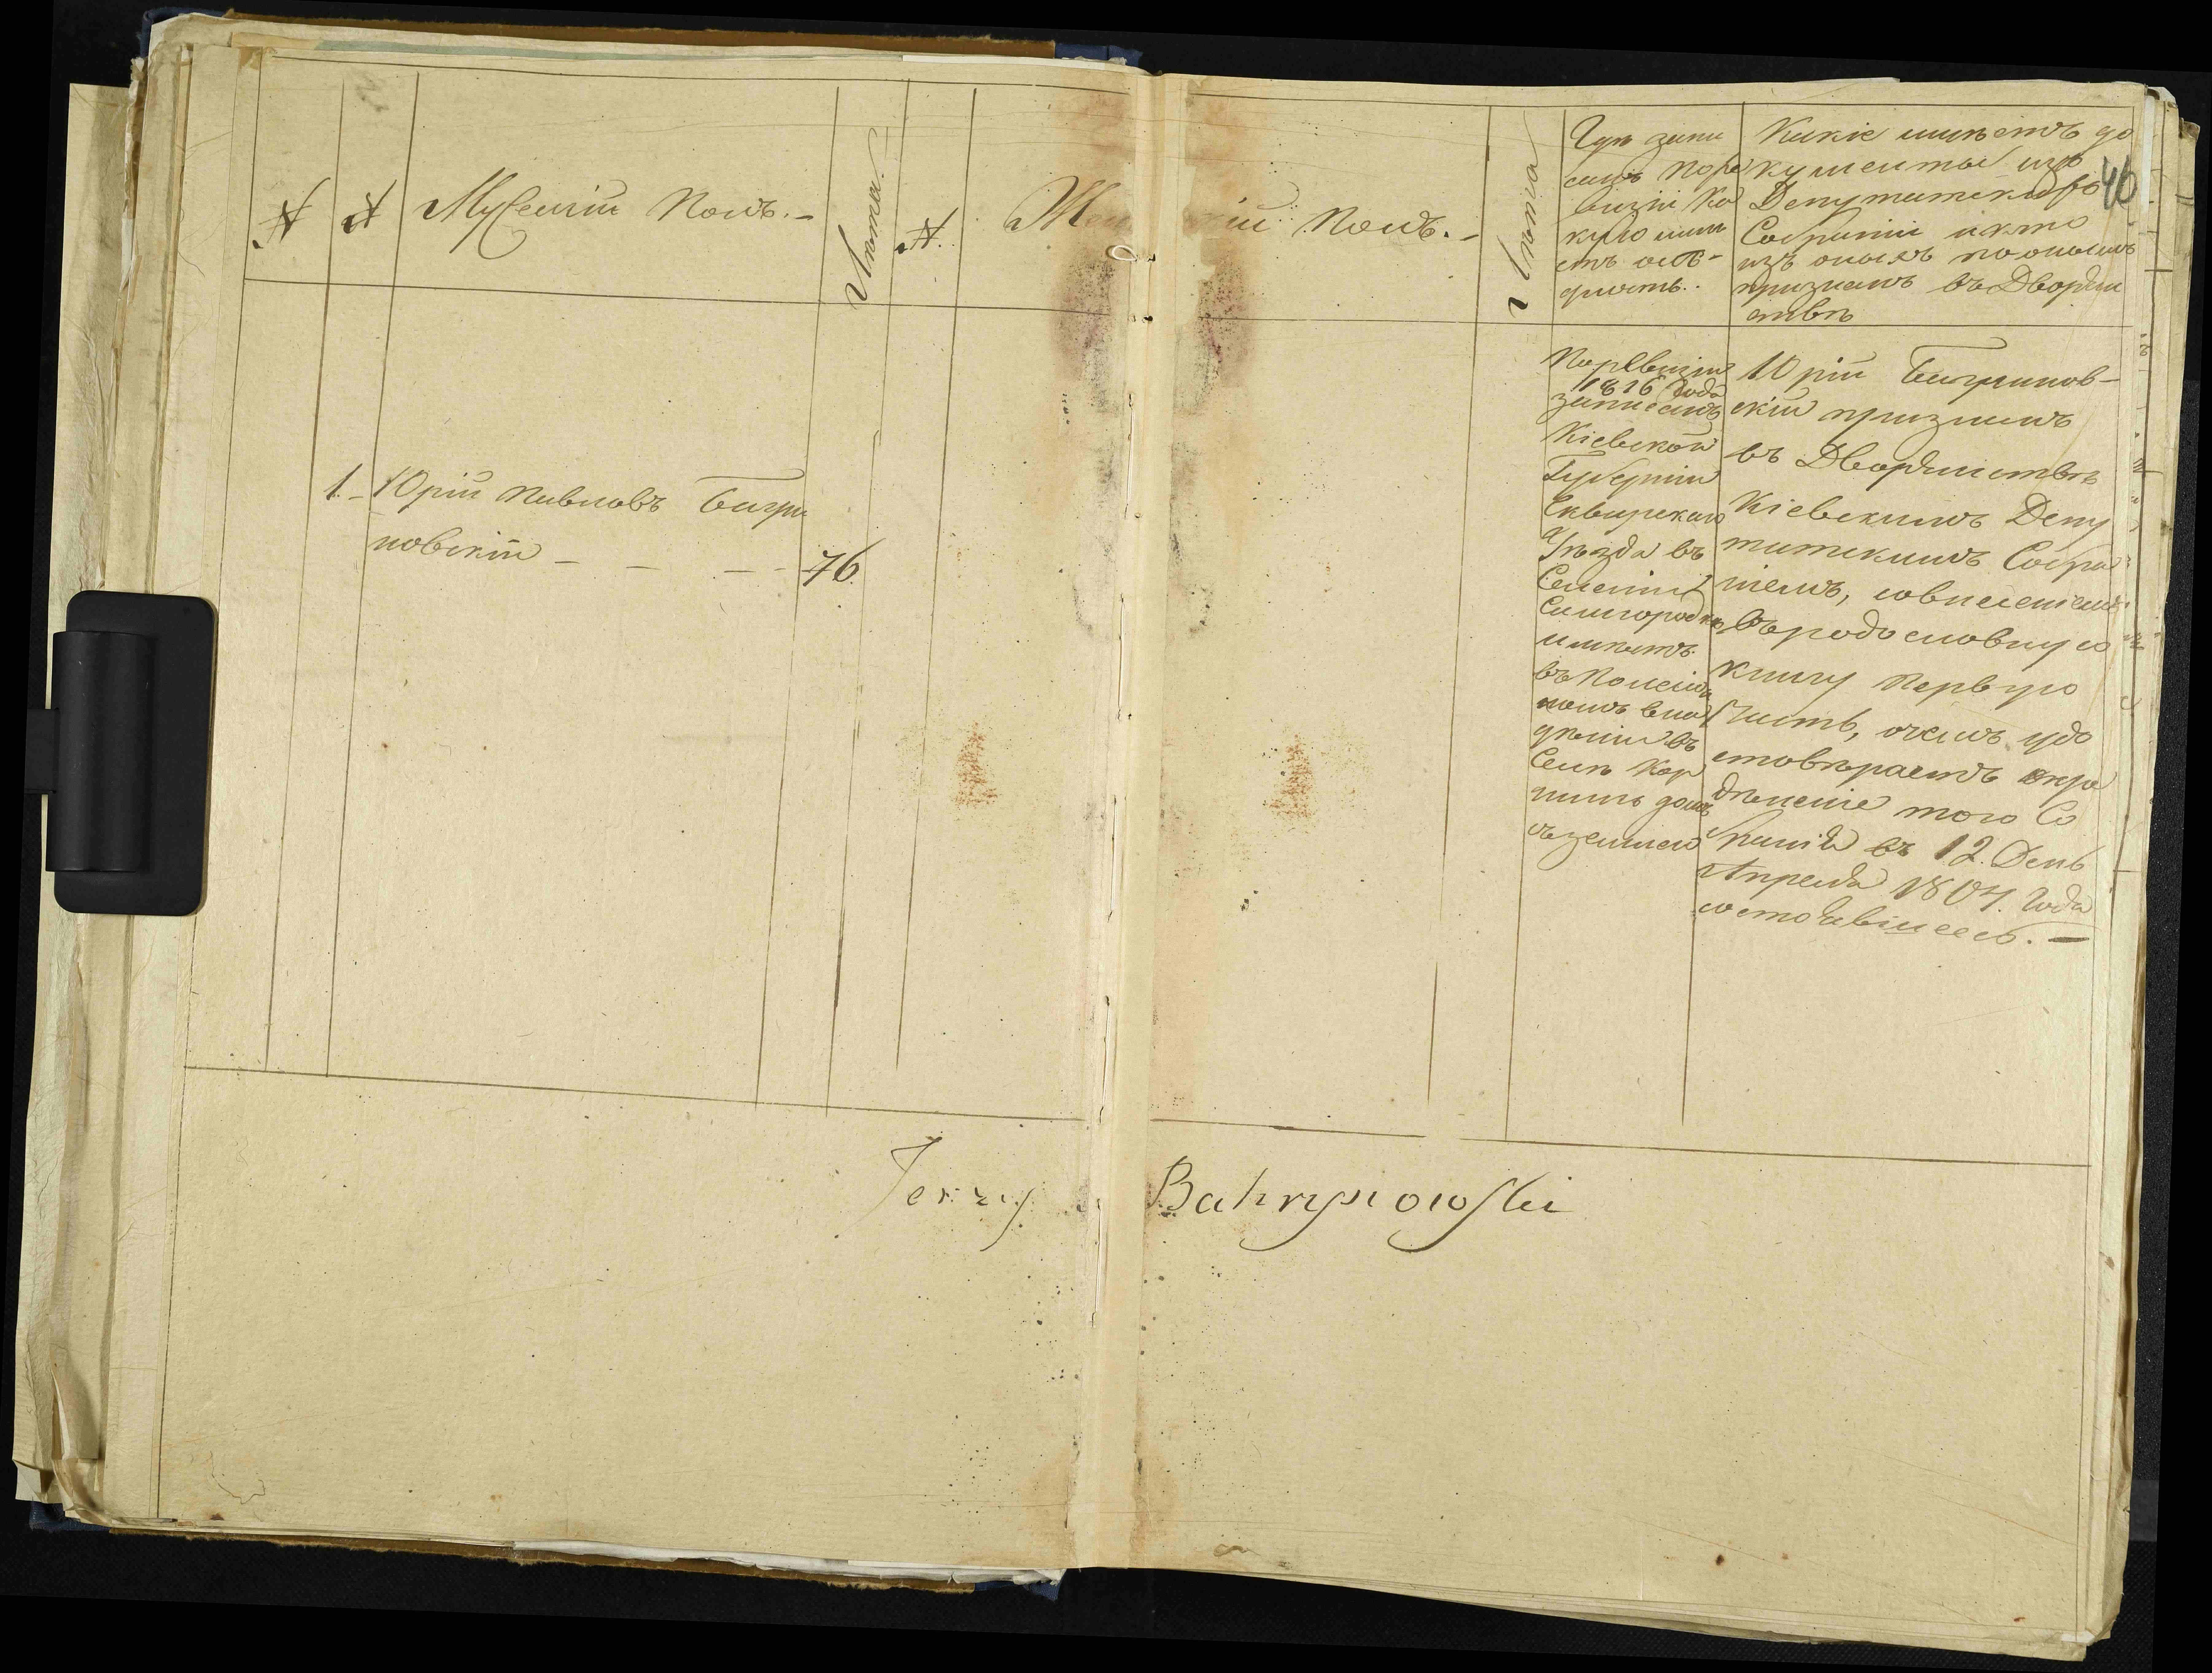 №
№
Мужескій Полъ. –
Лѣта.
№.
Же кій Полъ. –
Лѣта
Гдѣ запи
санъ поре
визіи ка
кую имѣ
етъ осѣ-
длость..
Какіе имѣетъ до
кументы изъ
Депутатскаго
Собранія и кто
изъ оныхъ по онымъ
признанъ въ Дворян
ствѣ
46
1. – Юрій Павловъ Багри
новскій – – – – 76
По ревизіи
1816 года
записанъ
Кіевской
Губерніи
Сквирскаго
Уѣзда въ
Селеніи
Самгородкѣ
имѣетъ
въ Помѣщ
ѣніи въ
Селѣ Кор
нинѣ домъ
съ землею
Юрій Багринов-
скій признанъ
въ Дворянствѣ
Кіевскимъ Депу
татскимъ Собра
ніемъ, со внесеніемъ
въ родословную
книгу Первую
Часть, о чемъ удо
стовѣряетъ опре
дѣленіе того Со
бранія въ 12. День
Апреля 1804. Года
состоявшееся. –
Jerzy Bahrynowski